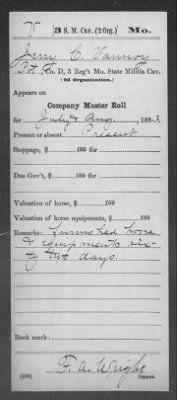 V 3 S. M. Cav. (2d Org.) Mo.
Jerry C. Vannoy
Pvt, Co. D, 3 Reg't Mo. State Militia Cav.
(2d Organization.)
Appears on
Company Muster Roll
for July & Aug., 186
Present or absent Present
Stoppage, $ 100 for
Due Gov't, $ 100 for
Valuation of horse, $ 100
Valuation of horse equipments, $ 100
Remarks: Furnished horse
& equipments six-
ty two days.
Book mark:
F. A. Wright
Copyist.